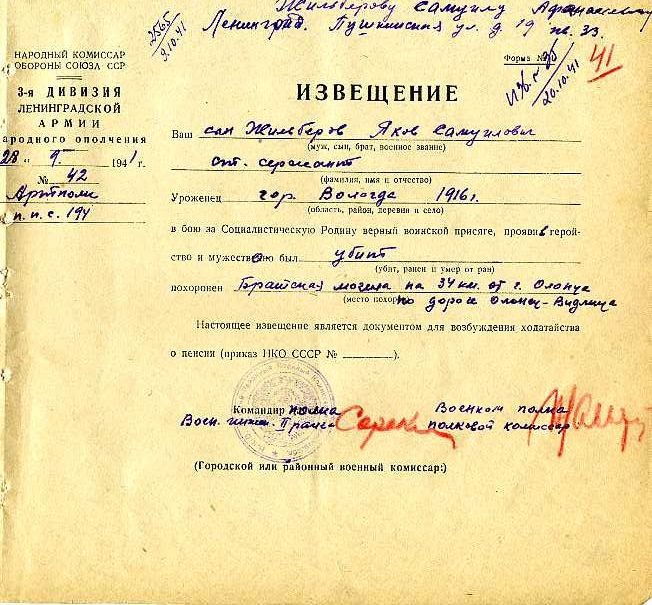 Жильберову Самуилу
Ленинград. Пушкинская ул. д. 19 кв. 33.
2565
9.10.41
НАРОДНЫЙ КОМИССАР
ОБОРОНЫ СОЮЗА ССР
3-я ДИВИЗИЯ
ЛЕНИНГРАДСКОЙ
АРМИИ
ародного ополчения
28 „ 9 1941 г.
№ 42
Артполк
п.п.с. 194
Форма №
20.10.41
41
ИЗВЕЩЕНИЕ
Ваш сын Жильберов Яков Самуилович
(муж, сын, брат, военное звание)
от. сержант
(фамилия, имя и отчество)
Уроженец гор. Вологда 1916 г.
(область, район, деревня и село)
в бою за Социалистическую Родину верный воинской присяге, проявив герой-
ство и мужество был убит
(убит, ранен и умер от ран)
похоронен Братская могила на 34 км. от г. Олонца
(место похорон по дороге Олонец-Видлица
Настоящее извещение является документом для возбуждения ходатайства
о пенсии (приказ НКО СССР № ).
Командир полка Военком полка
Воен. инжен. полковой комиссар
(Городской или районный военный комиссар:)